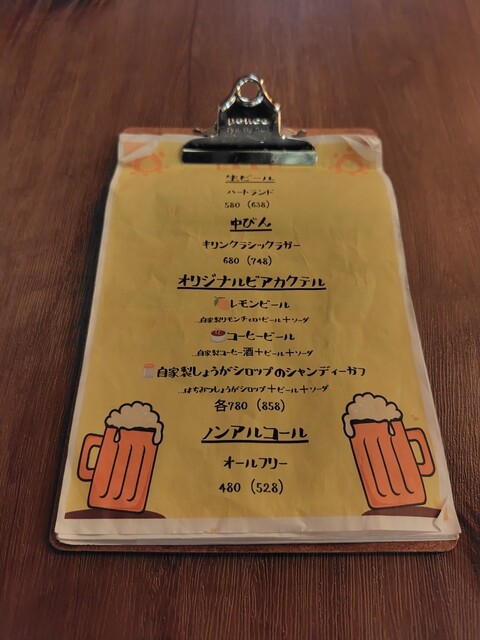 生ビール
ハートランド
580 (638)
中びん
キリンクラシックラガー
680 (748)
オリジナルビアカクテル
レモンビール
…自家製リモンチェロ+ビール+ソーダ
コーヒービール
…自家製コーヒー酒+ビール+ソーダ
自家製しょうがシロップのシャンディーガフ
…はちみつしょうがシロップ+ビール+ソーダ
各780 (858)
ノンアルコール
オールフリー
480 (528)